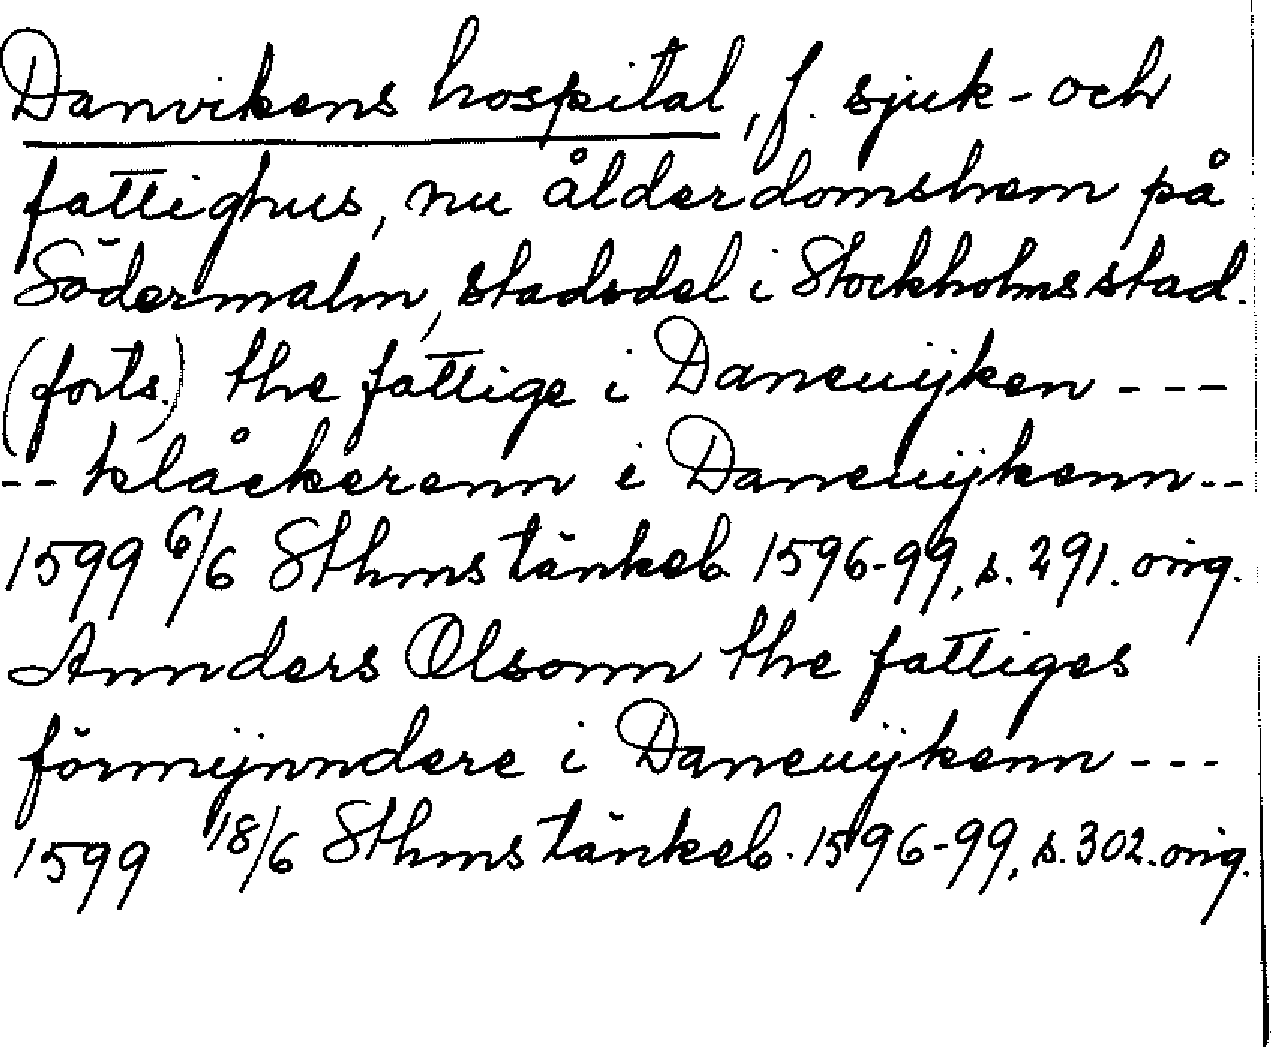 Danvikens hospital, f. sjuk- och
fattighus, nu ålderdomshem på
Södermalm, stadsdel i Stockholms stad.
(forts.) the fattige i Daneuijken ---
-- klåckerenn i Daneuijkenn --
1599 6/6 Sthms tänkeb. 1596-99, s. 291. orig.
Annders Olsonn the fattiges
förmijnndere i Daneuijkenn ---
1599 18/6 Sthms tänkeb. 1596-99, s. 302. orig.